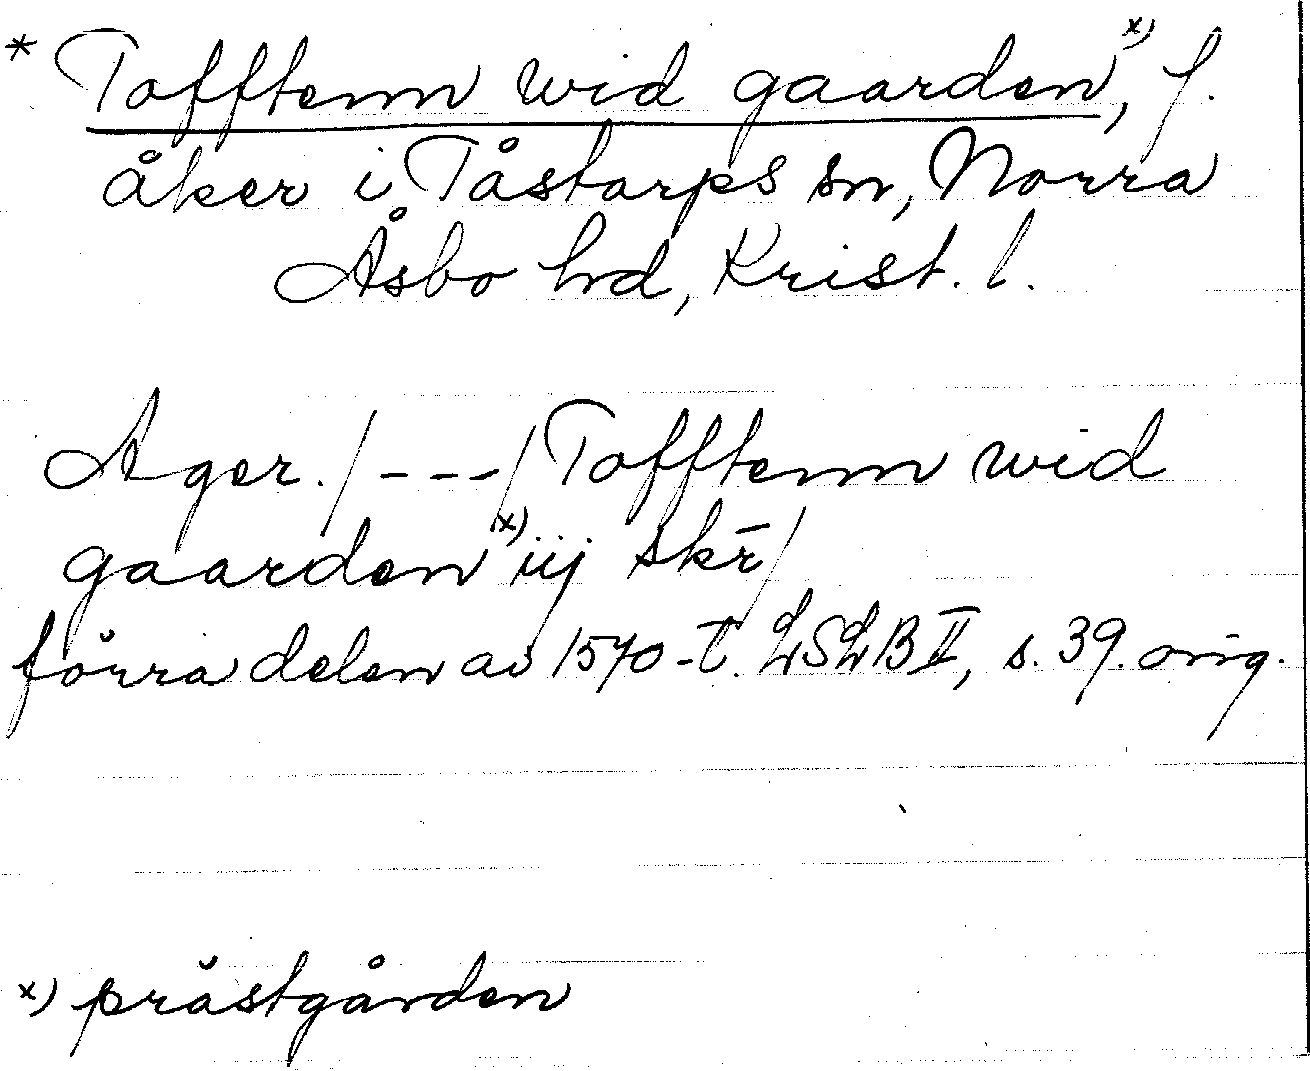 * Tofftenn wid gaarden x), f.
åker i Tåstarps sn, Norra
Åsbo hd, Krist. l.
Ager. / - - - / Tofftenn wid
gaarden x) iij skr̄ /
förra delen av 1570-t. LSLB II, s. 39. orig.
x) prästgården